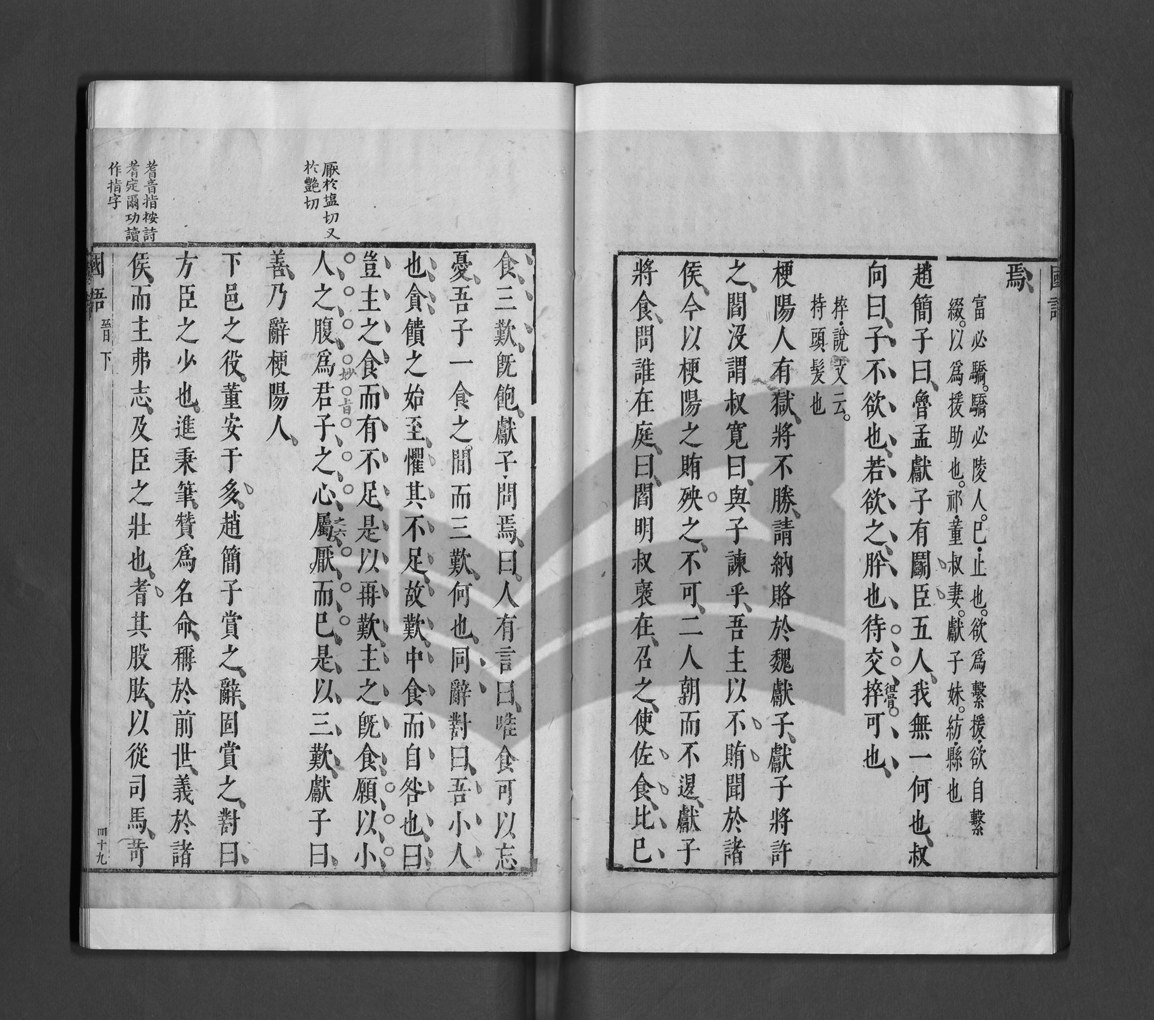 國語
焉
富必驕。驕必陵人。已。止也。欲爲繫援。欲自繫
綴。以爲援助也。祁。董叔妻。獻子妹。紡。縣也
趙簡子曰、魯孟獻子有鬭臣五人、我無一何也、叔
向曰、子不欲也、若欲之、肸也待交捽可也、
捽。說文云。
持頭髮也
梗陽人有獄、將不勝、請納賂於魏獻子、獻子將許
之、閻沒謂叔寬曰、與子諫乎、吾主以不賄聞於諸
侯、今以梗陽之賄殃之、不可、二人朝而不退、獻子
將食、問誰在庭、曰、閻明叔褒在、召之、使佐食、比已
食、三歎、旣飽、獻子問焉、曰、人有言曰、唯食可以忘
憂、吾子一食之間而三歎、何也、同辭對曰、吾小人
也、貪、饋之始至、懼其不足、故歎、中食而自咎也、曰、
豈主之食而有不足、是以再歎、主之旣食、願以小
人之腹、爲君子之心、屬厭而已、是以三歎、獻子曰、
善、乃辭梗陽人、
妙旨
厭於塩切又
於艷切
下邑之役、董安于多、趙簡子賞之、辭、固賞之、對曰、
方臣之少也、進秉筆、贊爲名命、稱於前世、義於諸
侯、而主弗志、及臣之壯也、耆其股肱、以從司馬、苛
耆音指按詩
耆定爾功讀
作指字
國語
晉下
四十九